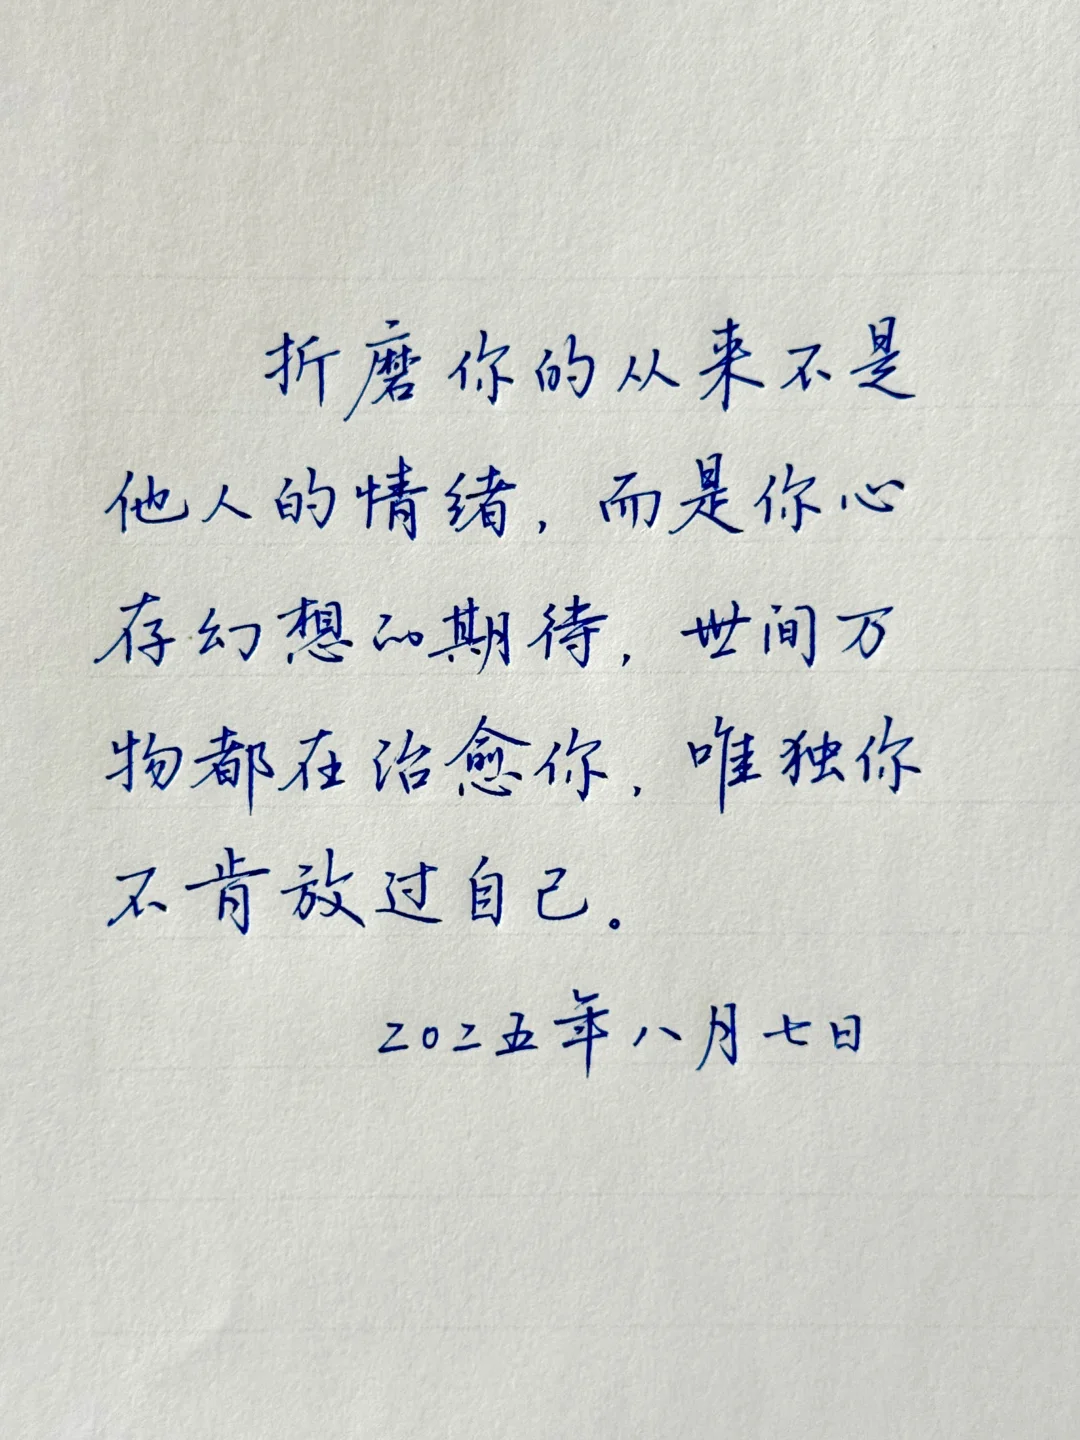 折磨你的从来不是
他人的情绪，而是你心
存幻想的期待，世间万
物都在治愈你，唯独你
不肯放过自己。
二〇二五年八月七日